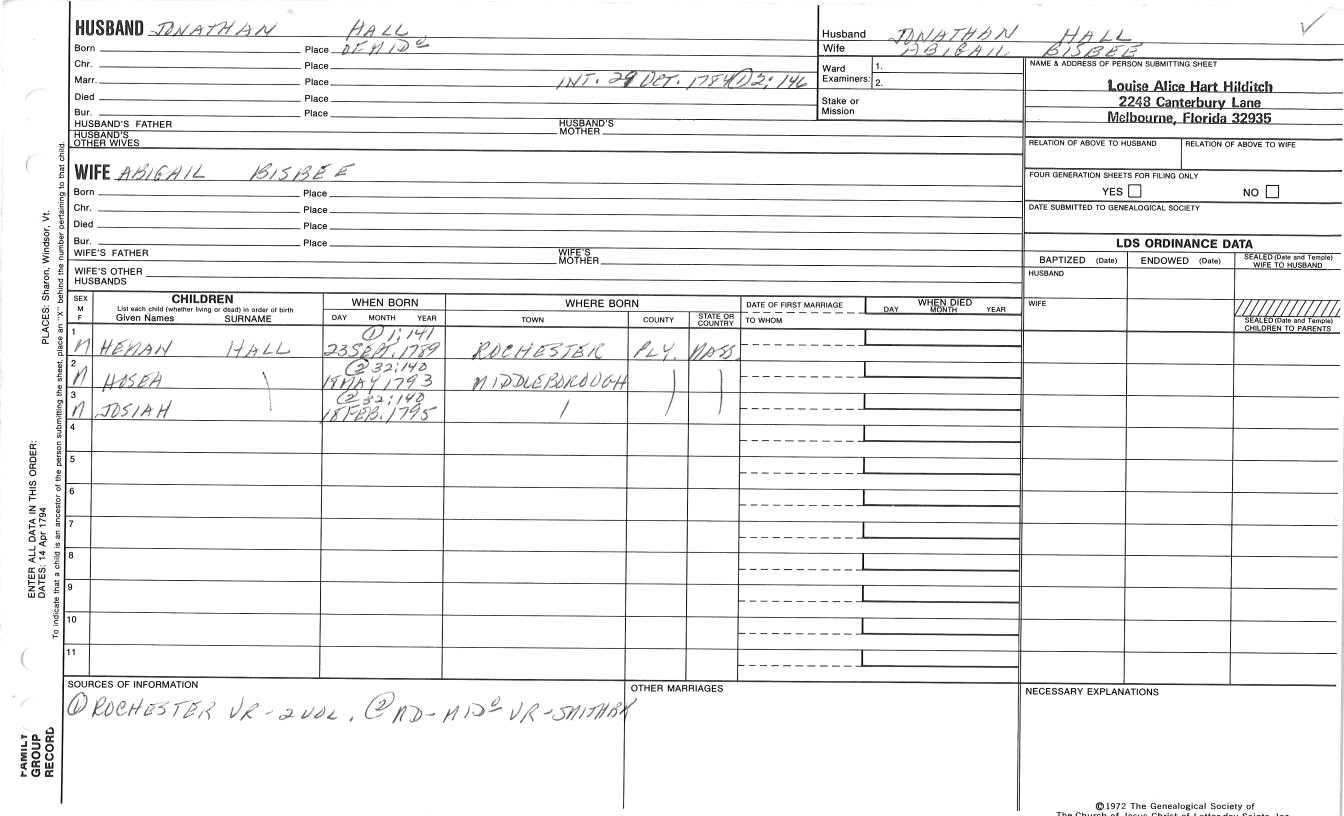 HUSBAND JONATHAN HALL
Born Place OF MIDo
Chr. Place
Marr. Place INT. 29 OCT. 1784 ① 2; 146
Died Place
Bur. Place
HUSBAND'S FATHER HUSBAND'S MOTHER
HUSBAND'S OTHER WIVES
Husband JONATHAN HALL
Wife ABIGAIL BISBEE
Ward Examiners: 1.
2.
Stake or Mission
NAME & ADDRESS OF PERSON SUBMITTING SHEET
Louise Alice Hart Hilditch
2248 Canterbury Lane
Melbourne, Florida 32935
RELATION OF ABOVE TO HUSBAND RELATION OF ABOVE TO WIFE
FOUR GENERATION SHEETS FOR FILING ONLY
YES NO
DATE SUBMITTED TO GENEALOGICAL SOCIETY
WIFE ABIGAIL BISBEE
Born Place
Chr. Place
Died Place
Bur. Place
WIFE'S FATHER WIFE'S MOTHER
WIFE'S OTHER HUSBANDS
LDS ORDINANCE DATA
BAPTIZED (Date) ENDOWED (Date) SEALED (Date and Temple) WIFE TO HUSBAND
HUSBAND
WIFE
SEALED (Date and Temple) CHILDREN TO PARENTS
SEX M F
CHILDREN
List each child (whether living or dead) in order of birth
Given Names SURNAME
WHEN BORN
DAY MONTH YEAR
WHERE BORN
TOWN COUNTY STATE OR COUNTRY
DATE OF FIRST MARRIAGE
TO WHOM
WHEN DIED
DAY MONTH YEAR
1 ① 1; 141
M HEMAN HALL 23 SEPT. 1789 ROCHESTER PLY. MASS.
2 ② 32; 140
M HOSEA 19 MAY 1793 MIDDLEBOROUGH
3 ② 32; 140
M JOSIAH 18 FEB. 1795
4
5
6
7
8
9
10
11
SOURCES OF INFORMATION
① ROCHESTER VR-2 VOL. ② MD-MIDo VR-SMITH
OTHER MARRIAGES
NECESSARY EXPLANATIONS
©1972 The Genealogical Society of
The Church of Jesus Christ of Latter-day Saints, Inc.
PLACES: Sharon, Windsor, Vt.
ENTER ALL DATA IN THIS ORDER:
DATES: 14 Apr 1794
To indicate that a child is an ancestor of the person submitting the sheet, place an "X" behind the number pertaining to that child.
FAMILY GROUP RECORD